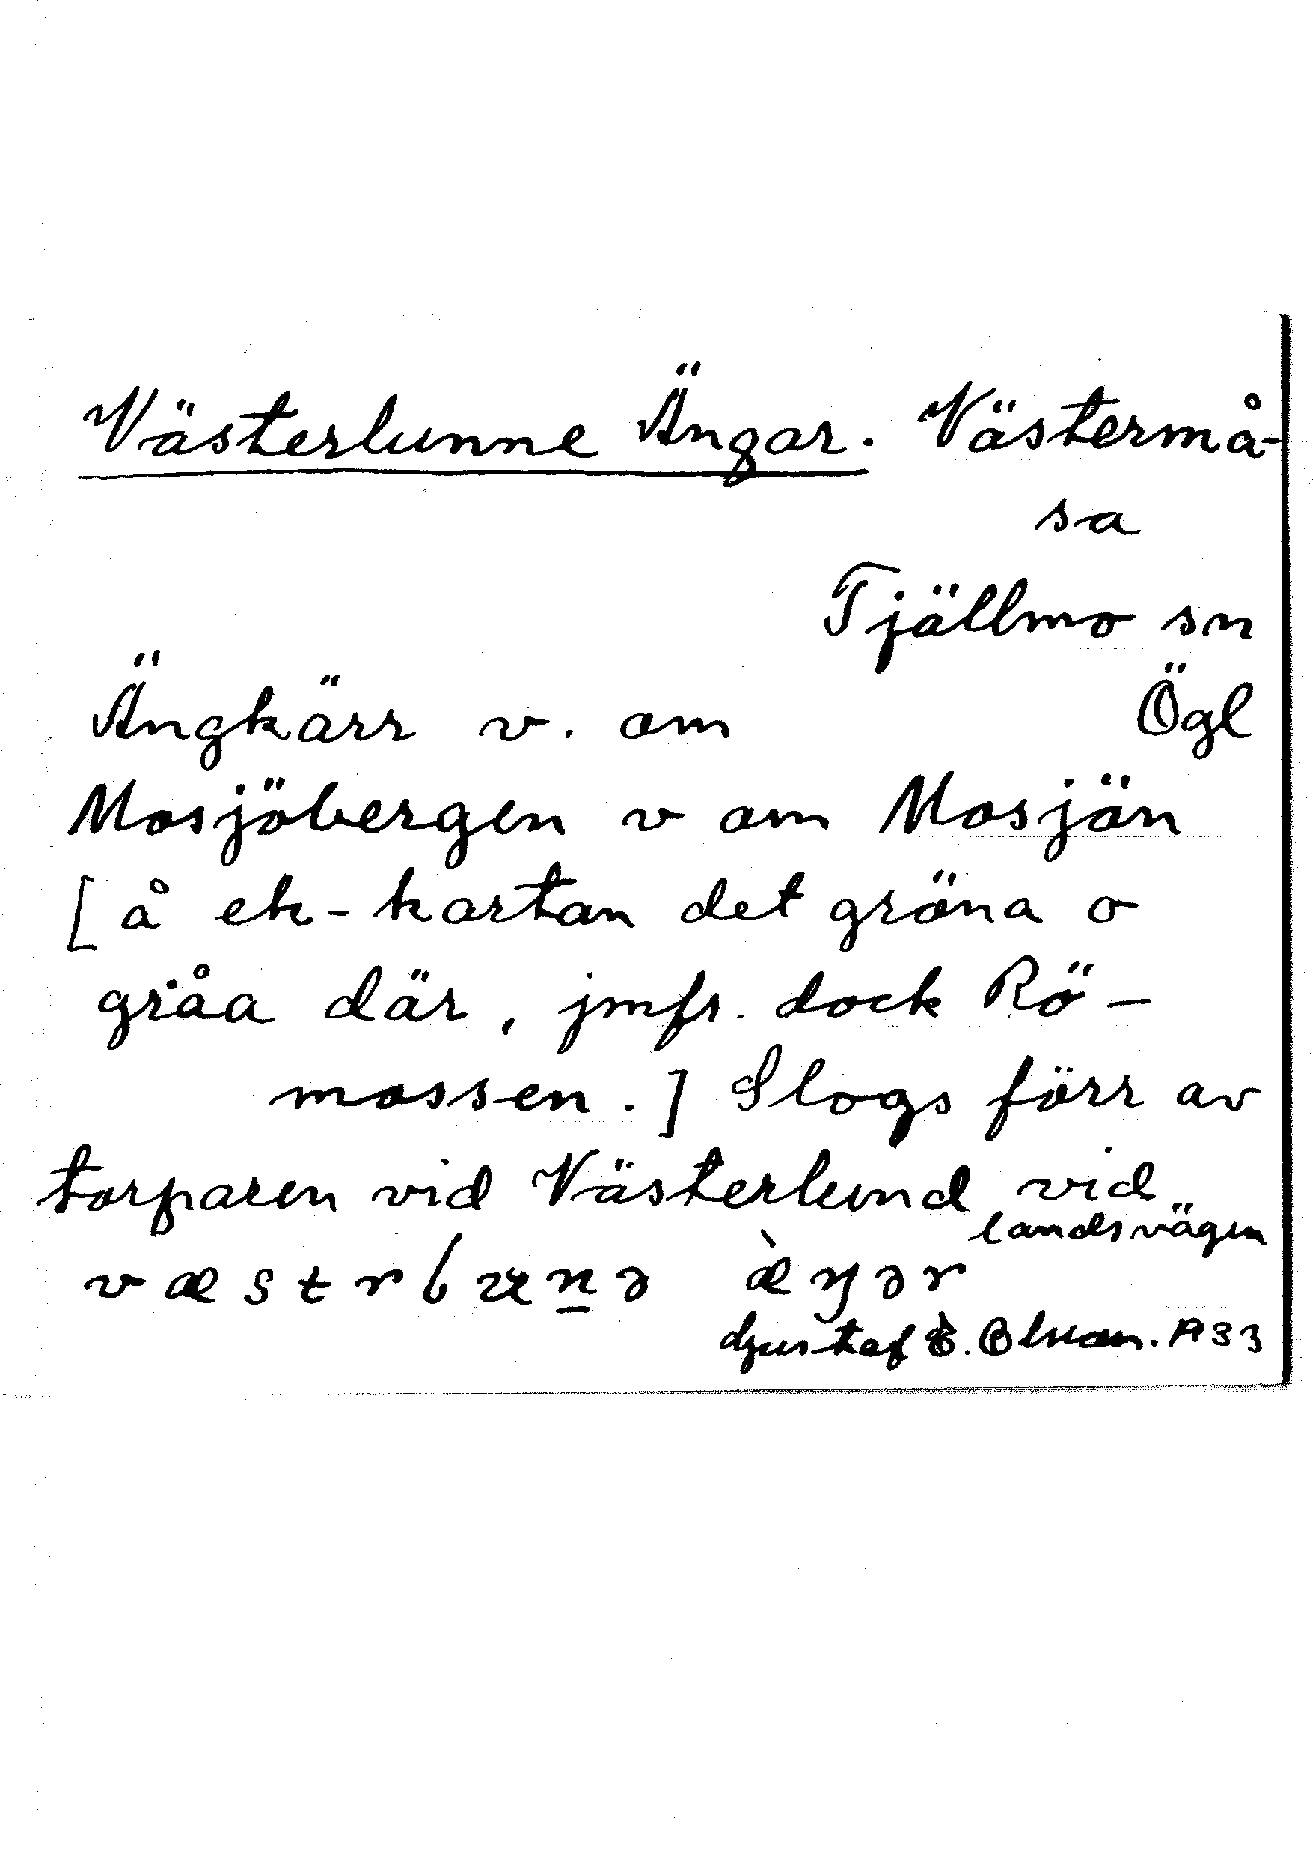 Västerlunne Ängar. Västermå-
sa
Tjällmo sn
Ängkärr v. om Ögl
Mosjöbergen v om Mosjön
[å ek-kartan det gröna o
gråa där, jmfr. dock Rö-
mossen.] Slogs förr av
torparen vid Västerlund vid
landsvägen
væstrlunə æ̀ŋər
Gustaf E. 1933